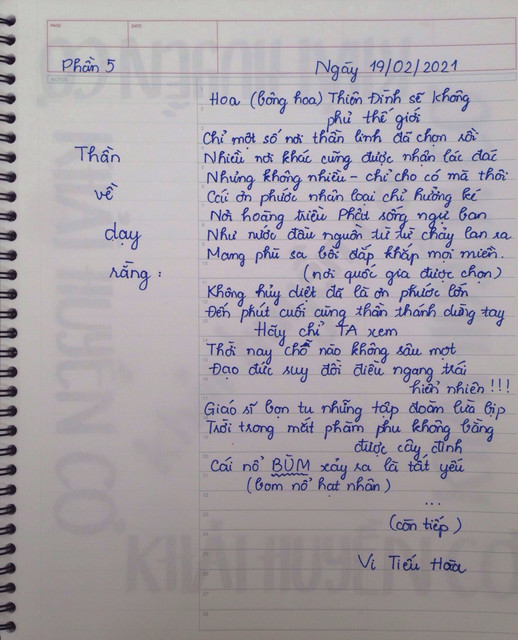 PAGE
DATE
Phần 5
Ngày 19/02/2021
Hoa (bông hoa) Thiên Đình sẽ không
phủ thế giới
Chỉ một số nơi thần linh đã chọn rồi
Thần
Nhiều nơi khác cũng được nhận lác đác
Nhưng không nhiều - chỉ cho có mà thôi
về
Cái ơn phước nhân loại chỉ hưởng ké
Nơi hoàng triều Phật sống ngự ban
dạy
Như nước đầu nguồn từ từ chảy lan ra
Mang phù sa bồi đắp khắp mọi miền.
rằng:
(nơi quốc gia được chọn)
Không hủy diệt đã là ơn phước lớn
Đến phút cuối cùng thần thánh dừng tay
Hãy chỉ TA xem
Thời nay chỗ nào không sâu mọt
Đạo đức suy đồi điều ngang trái
hiển nhiên!!!
Giáo sĩ bọn tu những tập đoàn lừa bịp
Trời trong mắt phàm phu không bằng
được cây đinh
Cái nổ BÙM xảy ra là tất yếu
(bom nổ hạt nhân)
...
(còn tiếp)
Vi Tiếu Hoa